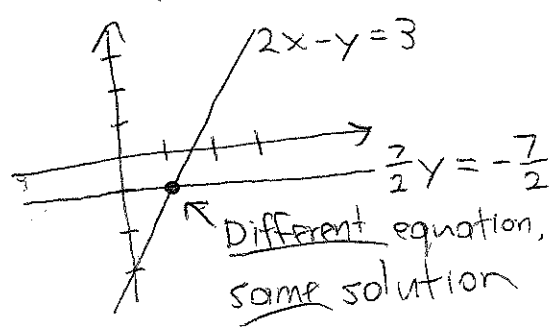 2x-y=3
7/2 y = -7/2
Different equation,
same solution